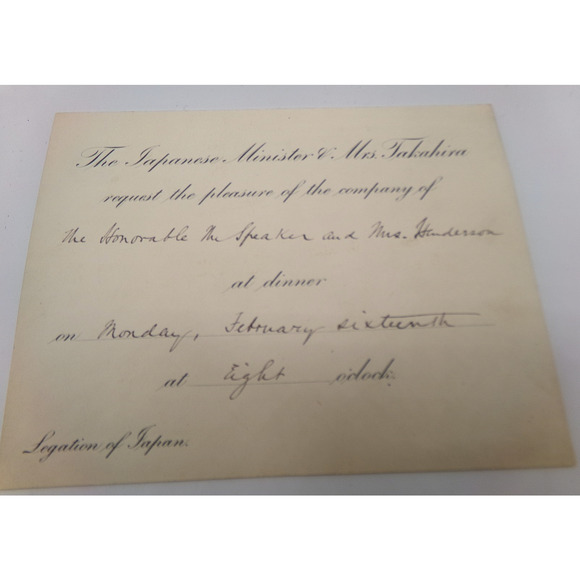 The Japanese Minister & Mrs. Takahira
request the pleasure of the company of
the Honorable the Speaker and Mrs. Henderson
at dinner
on Monday, February sixteenth
at Eight o'clock.
Legation of Japan.